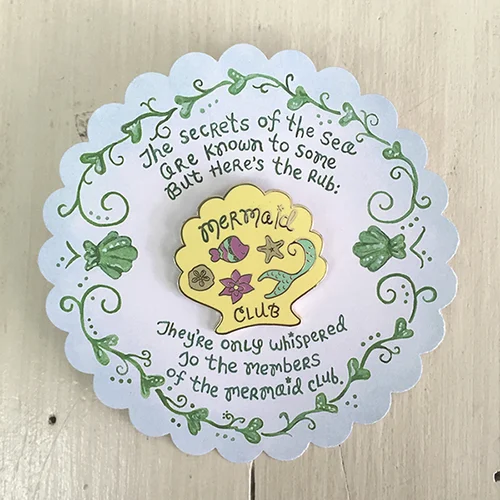 The secrets of the sea
are known to some
But Here's the Rub:
mermaid
CLUB
They're only whispered
To the members
of the mermaid club.